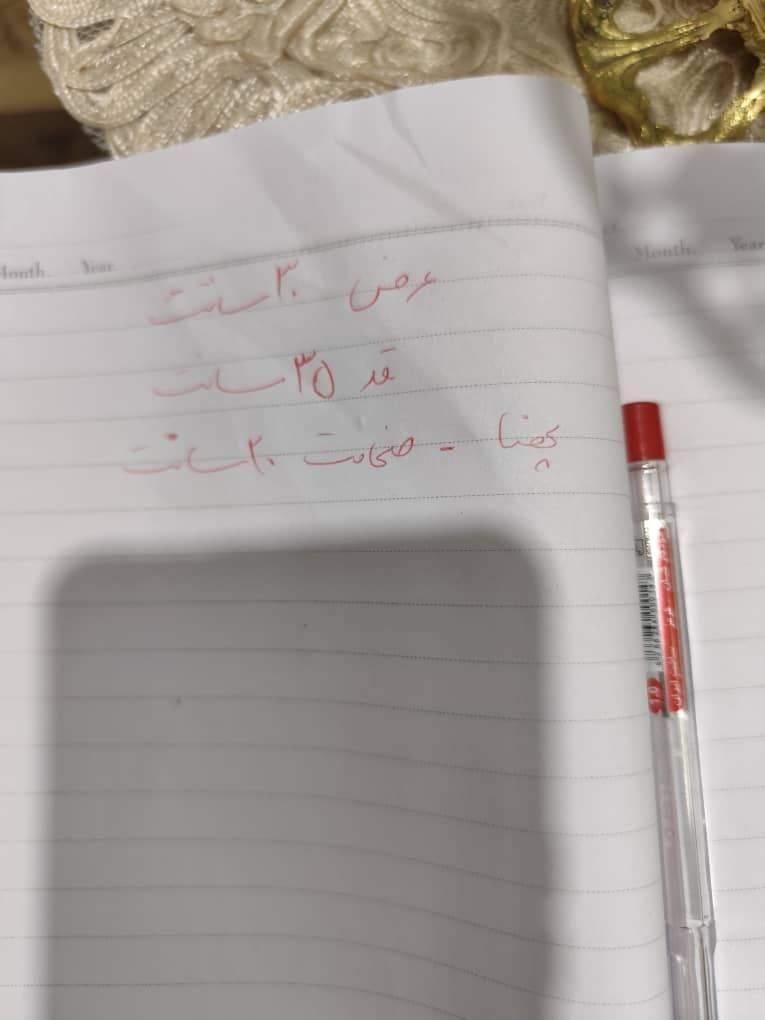 Month. Year
Month. Year
عرض ۳۰ سانت
قد ۳۵ سانت
پهنا - ضخامت ۲۰ سانت